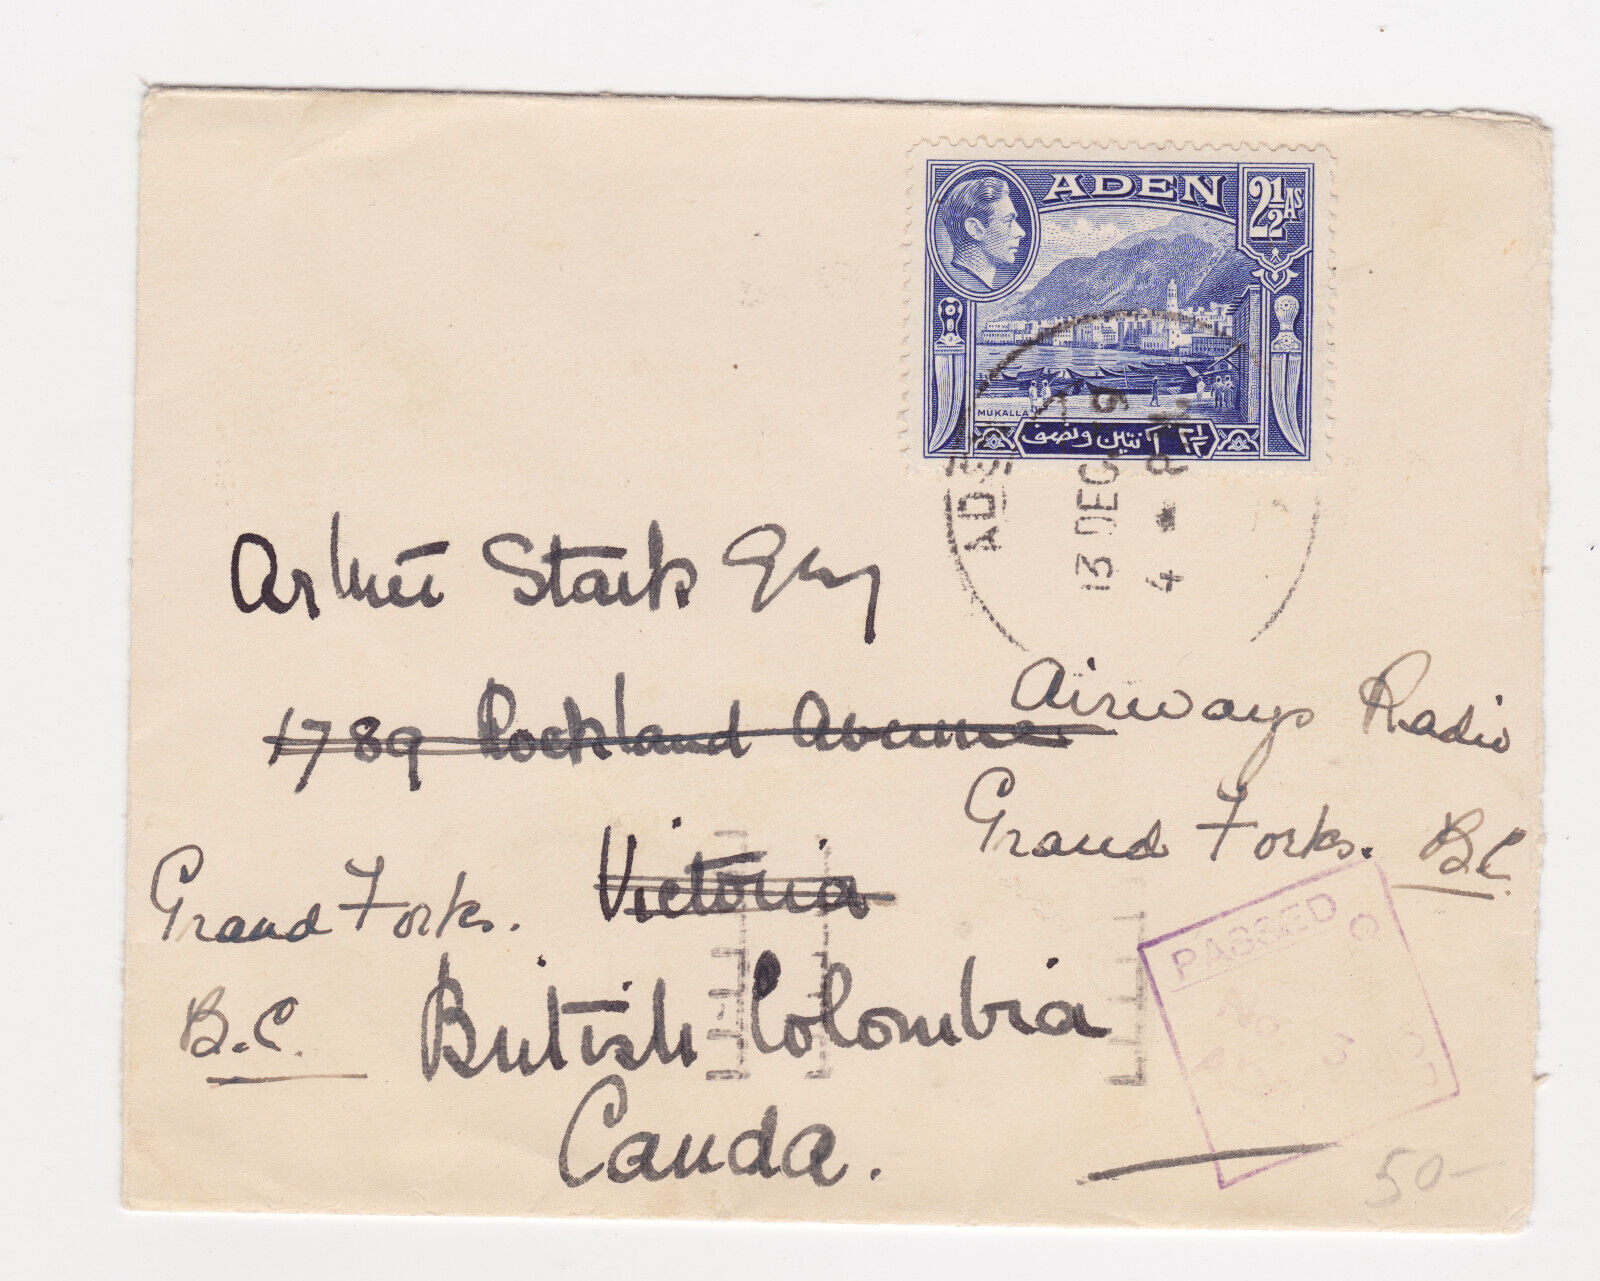 ADEN
2½ AS
MUKALLA
آنتين ونصف ٢½
13 DEC
4 P
Arthur Stark Esq
1789 Rockland Avenue
Airways Radio
Grand Forks. B.C.
Victoria
Grand Forks.
B.C.
British Colombia
Canda.
PASSED
No 3
50-